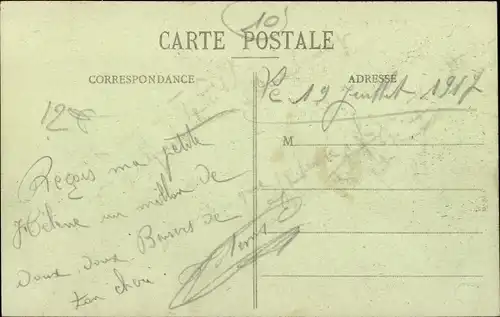 10
CARTE POSTALE
CORRESPONDANCE
ADRESSE
Le 19 Juillet 1917
M
Reçois ma petite
Hélène un million de
doux, doux Baisers de
ton chéri